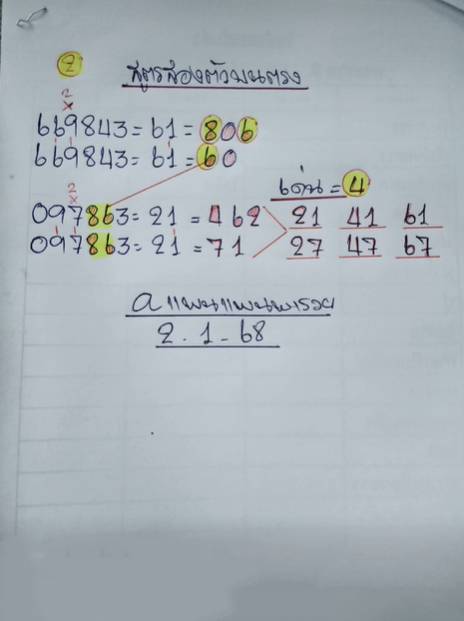 2
สูตรสองตัวบนตรง
2
x
669843 = 61 = 806
669843 = 61 = 60
เด่น = 4
2
x
097863 = 21 = 462 21 41 61
097863 = 21 = 71 27 47 67
aแพนแพนพารวย
2.1-68